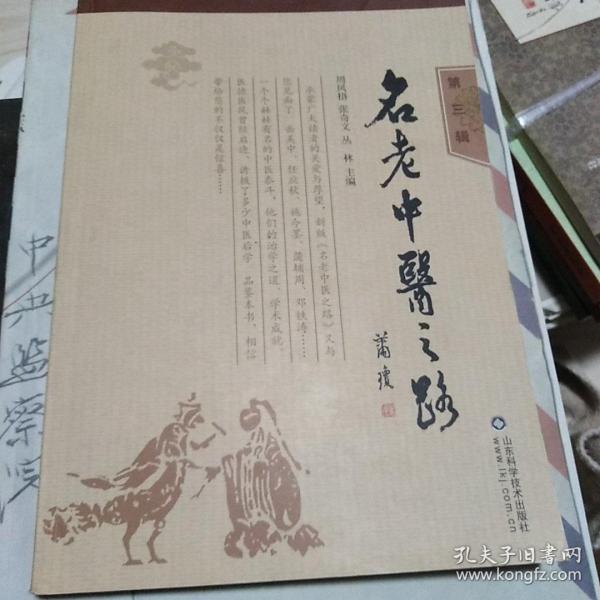 第三辑
名老中醫之路
萧瓊
周凤梧 张奇文 丛 林 主编
承蒙广大读者的关爱与厚望,新版《名老中医之路》又与
您见面了 岳美中、任应秋、施今墨、蒲辅周、邓铁涛……
一个个赫赫有名的中医泰斗,他们的治学之道、学术成就、
医德医风曾经启迪、濡染了多少中医后学 品鉴本书,相信
带给您的不仅仅是惊喜……
山东科学技术出版社
www.lkj.com.cn
中央监察院
孔夫子旧书网
www.kongfz.com